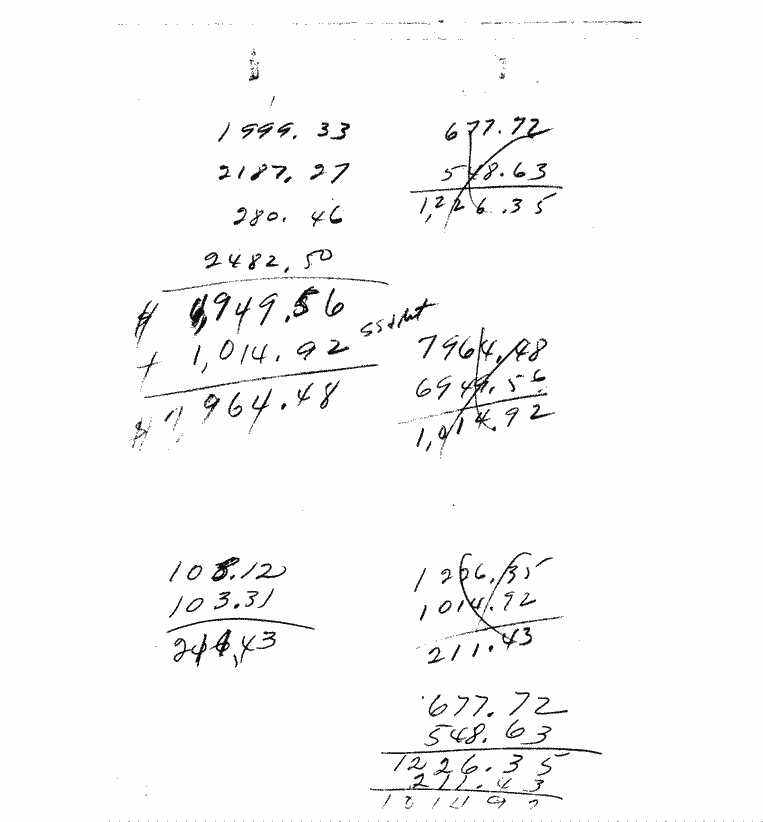 1999.33
2187.27
280.46
2482.50
$ 6,949.56
+ 1,014.92 SS + Met
$ 7,964.48
677.72
548.63
1,226.35
7964.48
6949.56
1,014.92
108.12
103.31
211.43
1226.35
1014.92
211.43
677.72
548.63
1226.35
211.43
101492